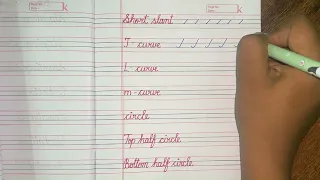 Short slant
J-curve
L-curve
m-curve
circle
Top half circle
Bottom half circle